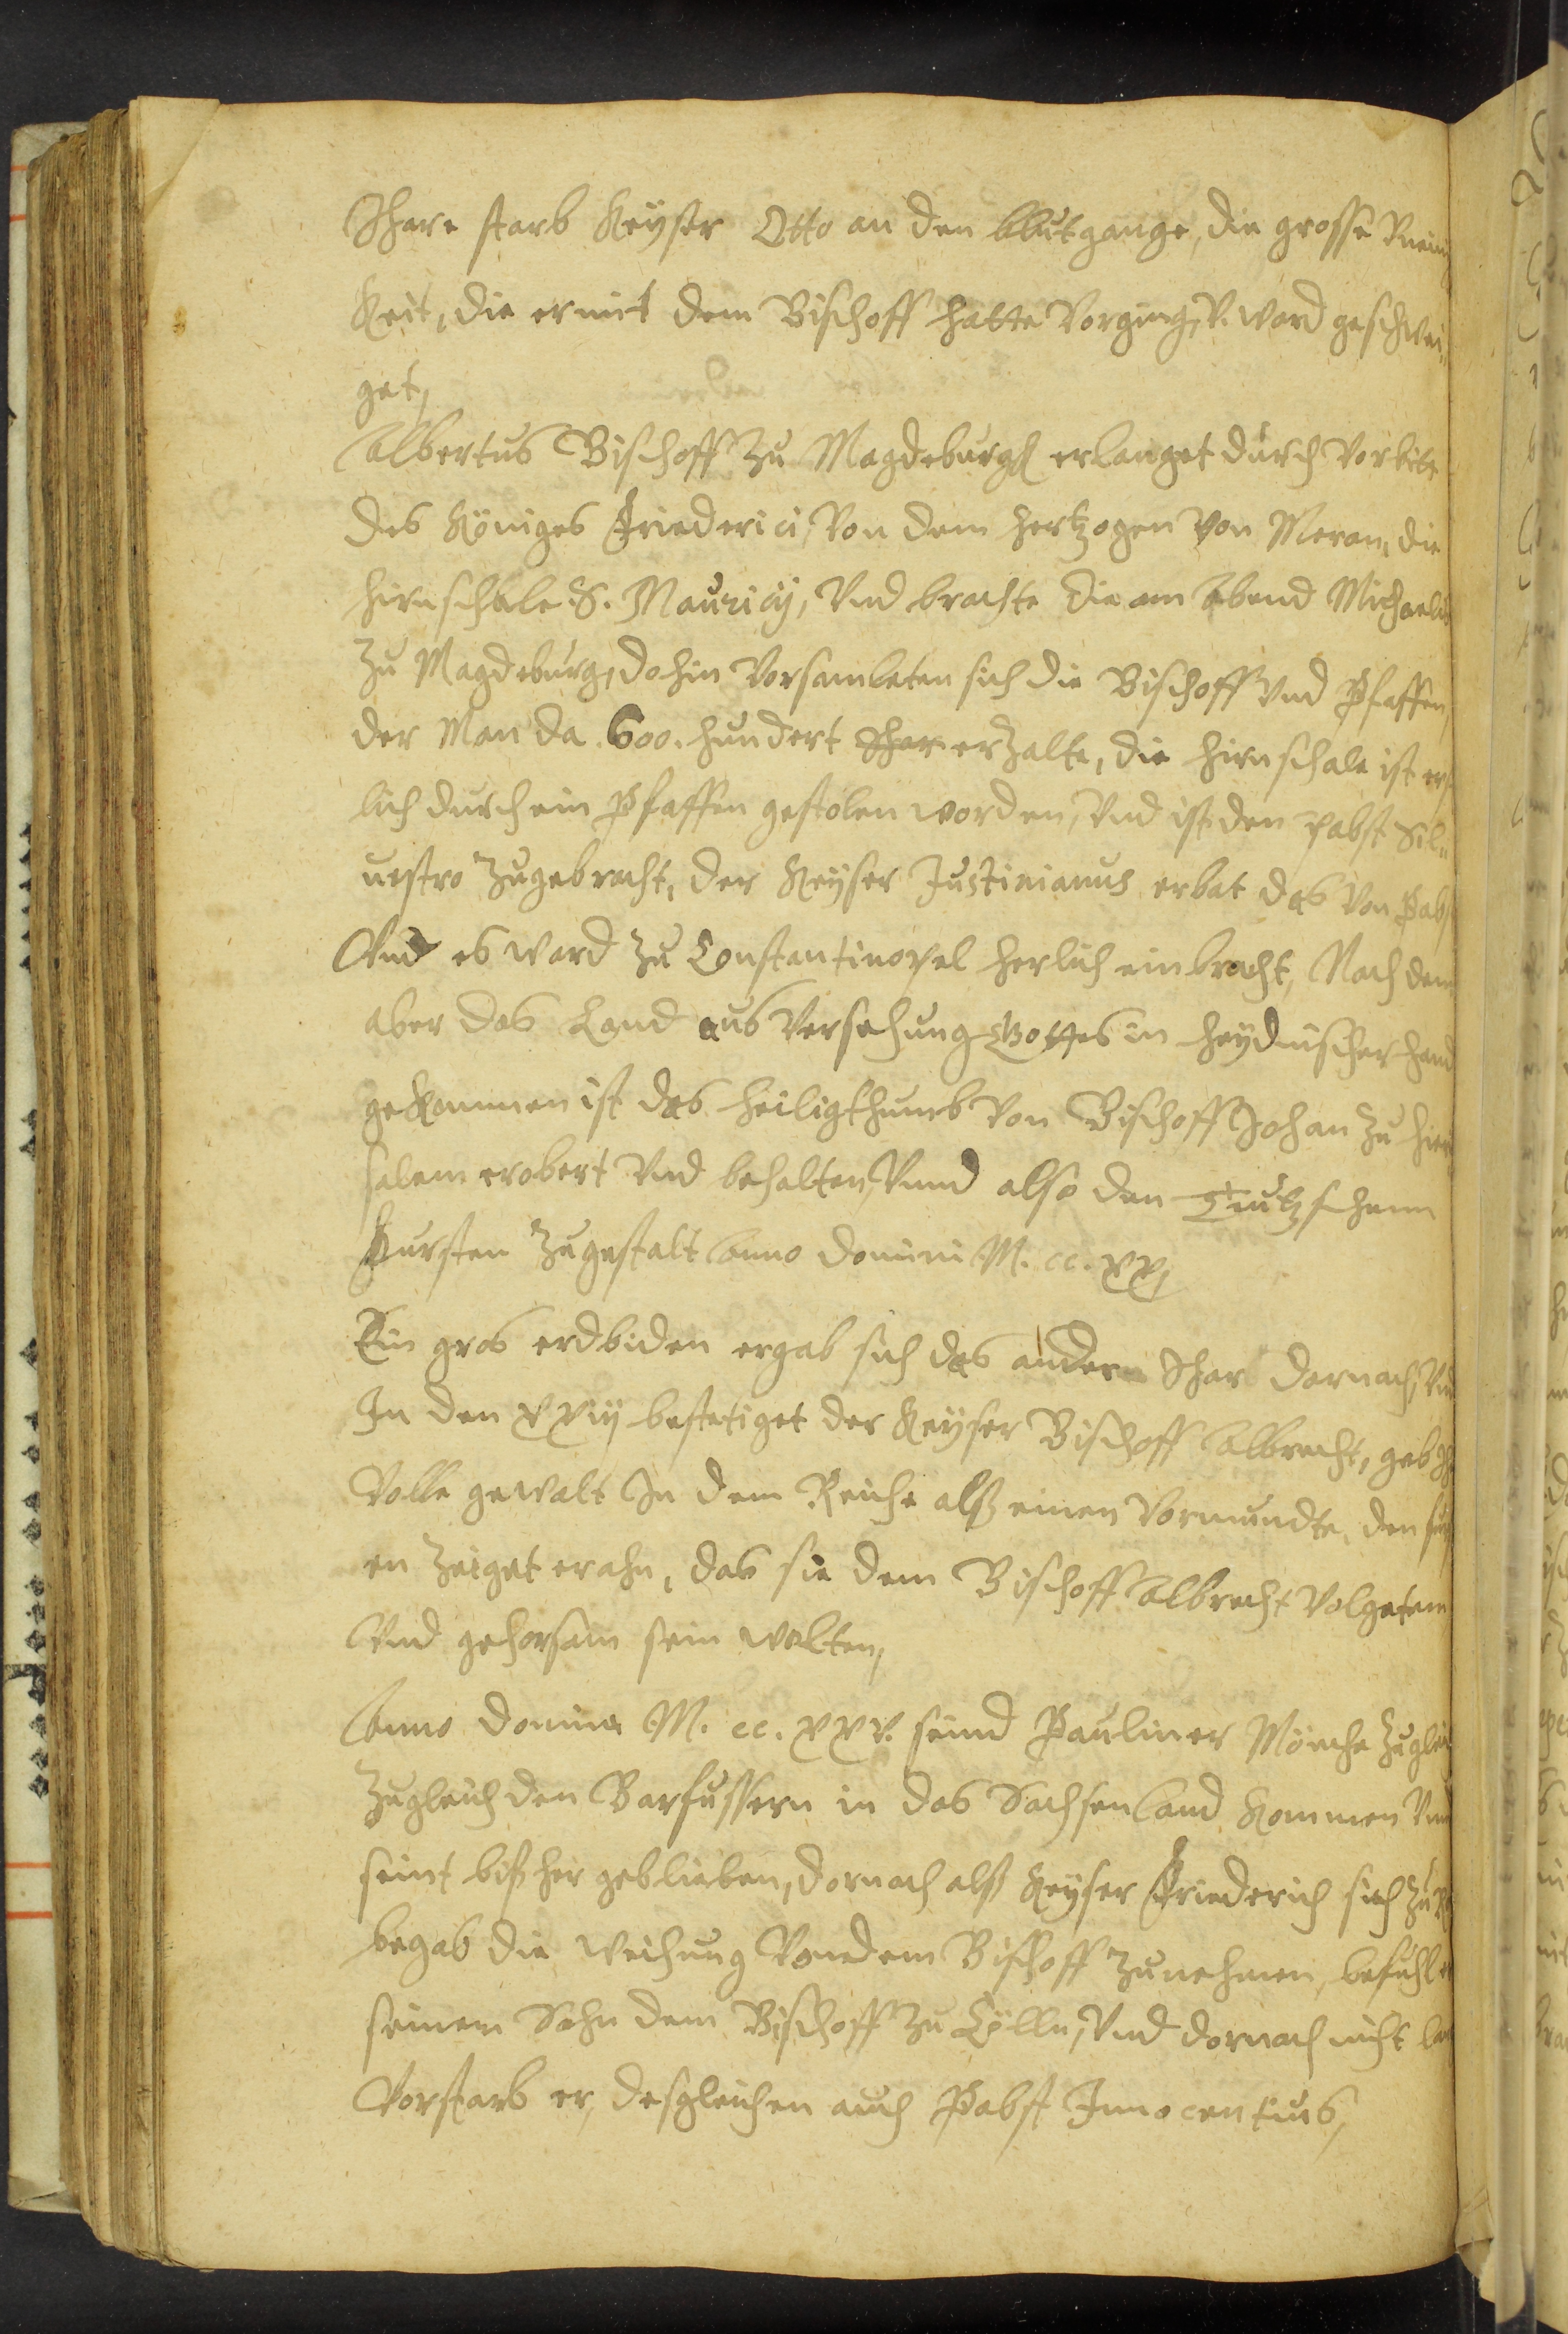 Jhare starb Keyser Otto an den blutgange, die grosse Vneinig
keit, die er mit dem Bischoff hatte Vorging, V. ward geschwei¬
get,
Albertus Bischoff zu Magdeburgk erlanget durch Vorbite
des Königes Friederici, Von dem hertzogen Von Meran, die
hirnschale S. Mauricij, Vnd brachte die am Abend Michaelis
zu Magdeburg, dohin Vorsamleten sich die Bischoff Vnd Pfaffen,
der Man da .600. hundert Ihar erzalte, die hirnschale ist ers
lich durch ein Pfaffen gestolen worden, Vnd ist den pabst Sil¬
uestro zugebracht, der Keyser Justinianus erbat das Von Pabst
Vnd es ward zu Constantinopel herlich einbracht, Nach dem
aber das Land aus Versehung Gottes in heydnischer hand
gekommen ist das heiligthumb Von Bischoff Johan zu Hieru
salem erobert Vnd behalten, Vnnd also den Teutzschenn
Fursten zugestalt Anno domini M. cc. xx,
Ein gros erdbiden ergab sich das andern Ihar darnach, Vnd
In den xxiij bestetiget der Keyser Bischoff Albrecht, gab Ih
Volle gewalt In dem Reiche alß einen Vormundte, den furst
en zeiget er ahn, das sie dem Bischoff Albrecht Volgetenn
Vnd gehorsam sein wolten,
Anno domini M. cc. xxv. seind Pauliner Mönche zugleich
zugleich den Barfussern in das Sachsenland kommen Vnd
seint bis her geblieben, dornach alß Keyser Friederich sich zu R
begab die weihung Von dem Bischoff zunehmen, befuhl er
seinen Sohn dem Bischoff zu Cölln, Vnd dornach nicht lan
Vorstarb er, desgleichen auch Pabst Innocentius,